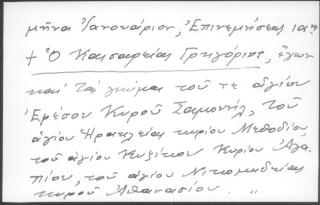 μῆνα Ἰανουάριον, Ἐπινεμήσεως ια'ης
+ Ὁ Καισαρείας Γρηγόριος, ἔχων
καὶ τὰς γνώμας τοῦ τε ἁγίου
Ἐφέσου Κυροῦ Σαμουήλ, τοῦ
ἁγίου Ἡρακλείας κυρίου Μεθοδίου,
τοῦ ἁγίου Κυζίκου Κυρίου Ἀγα-
πίου, τοῦ ἁγίου Νικομηδείας
κυροῦ Ἀθανασίου. „